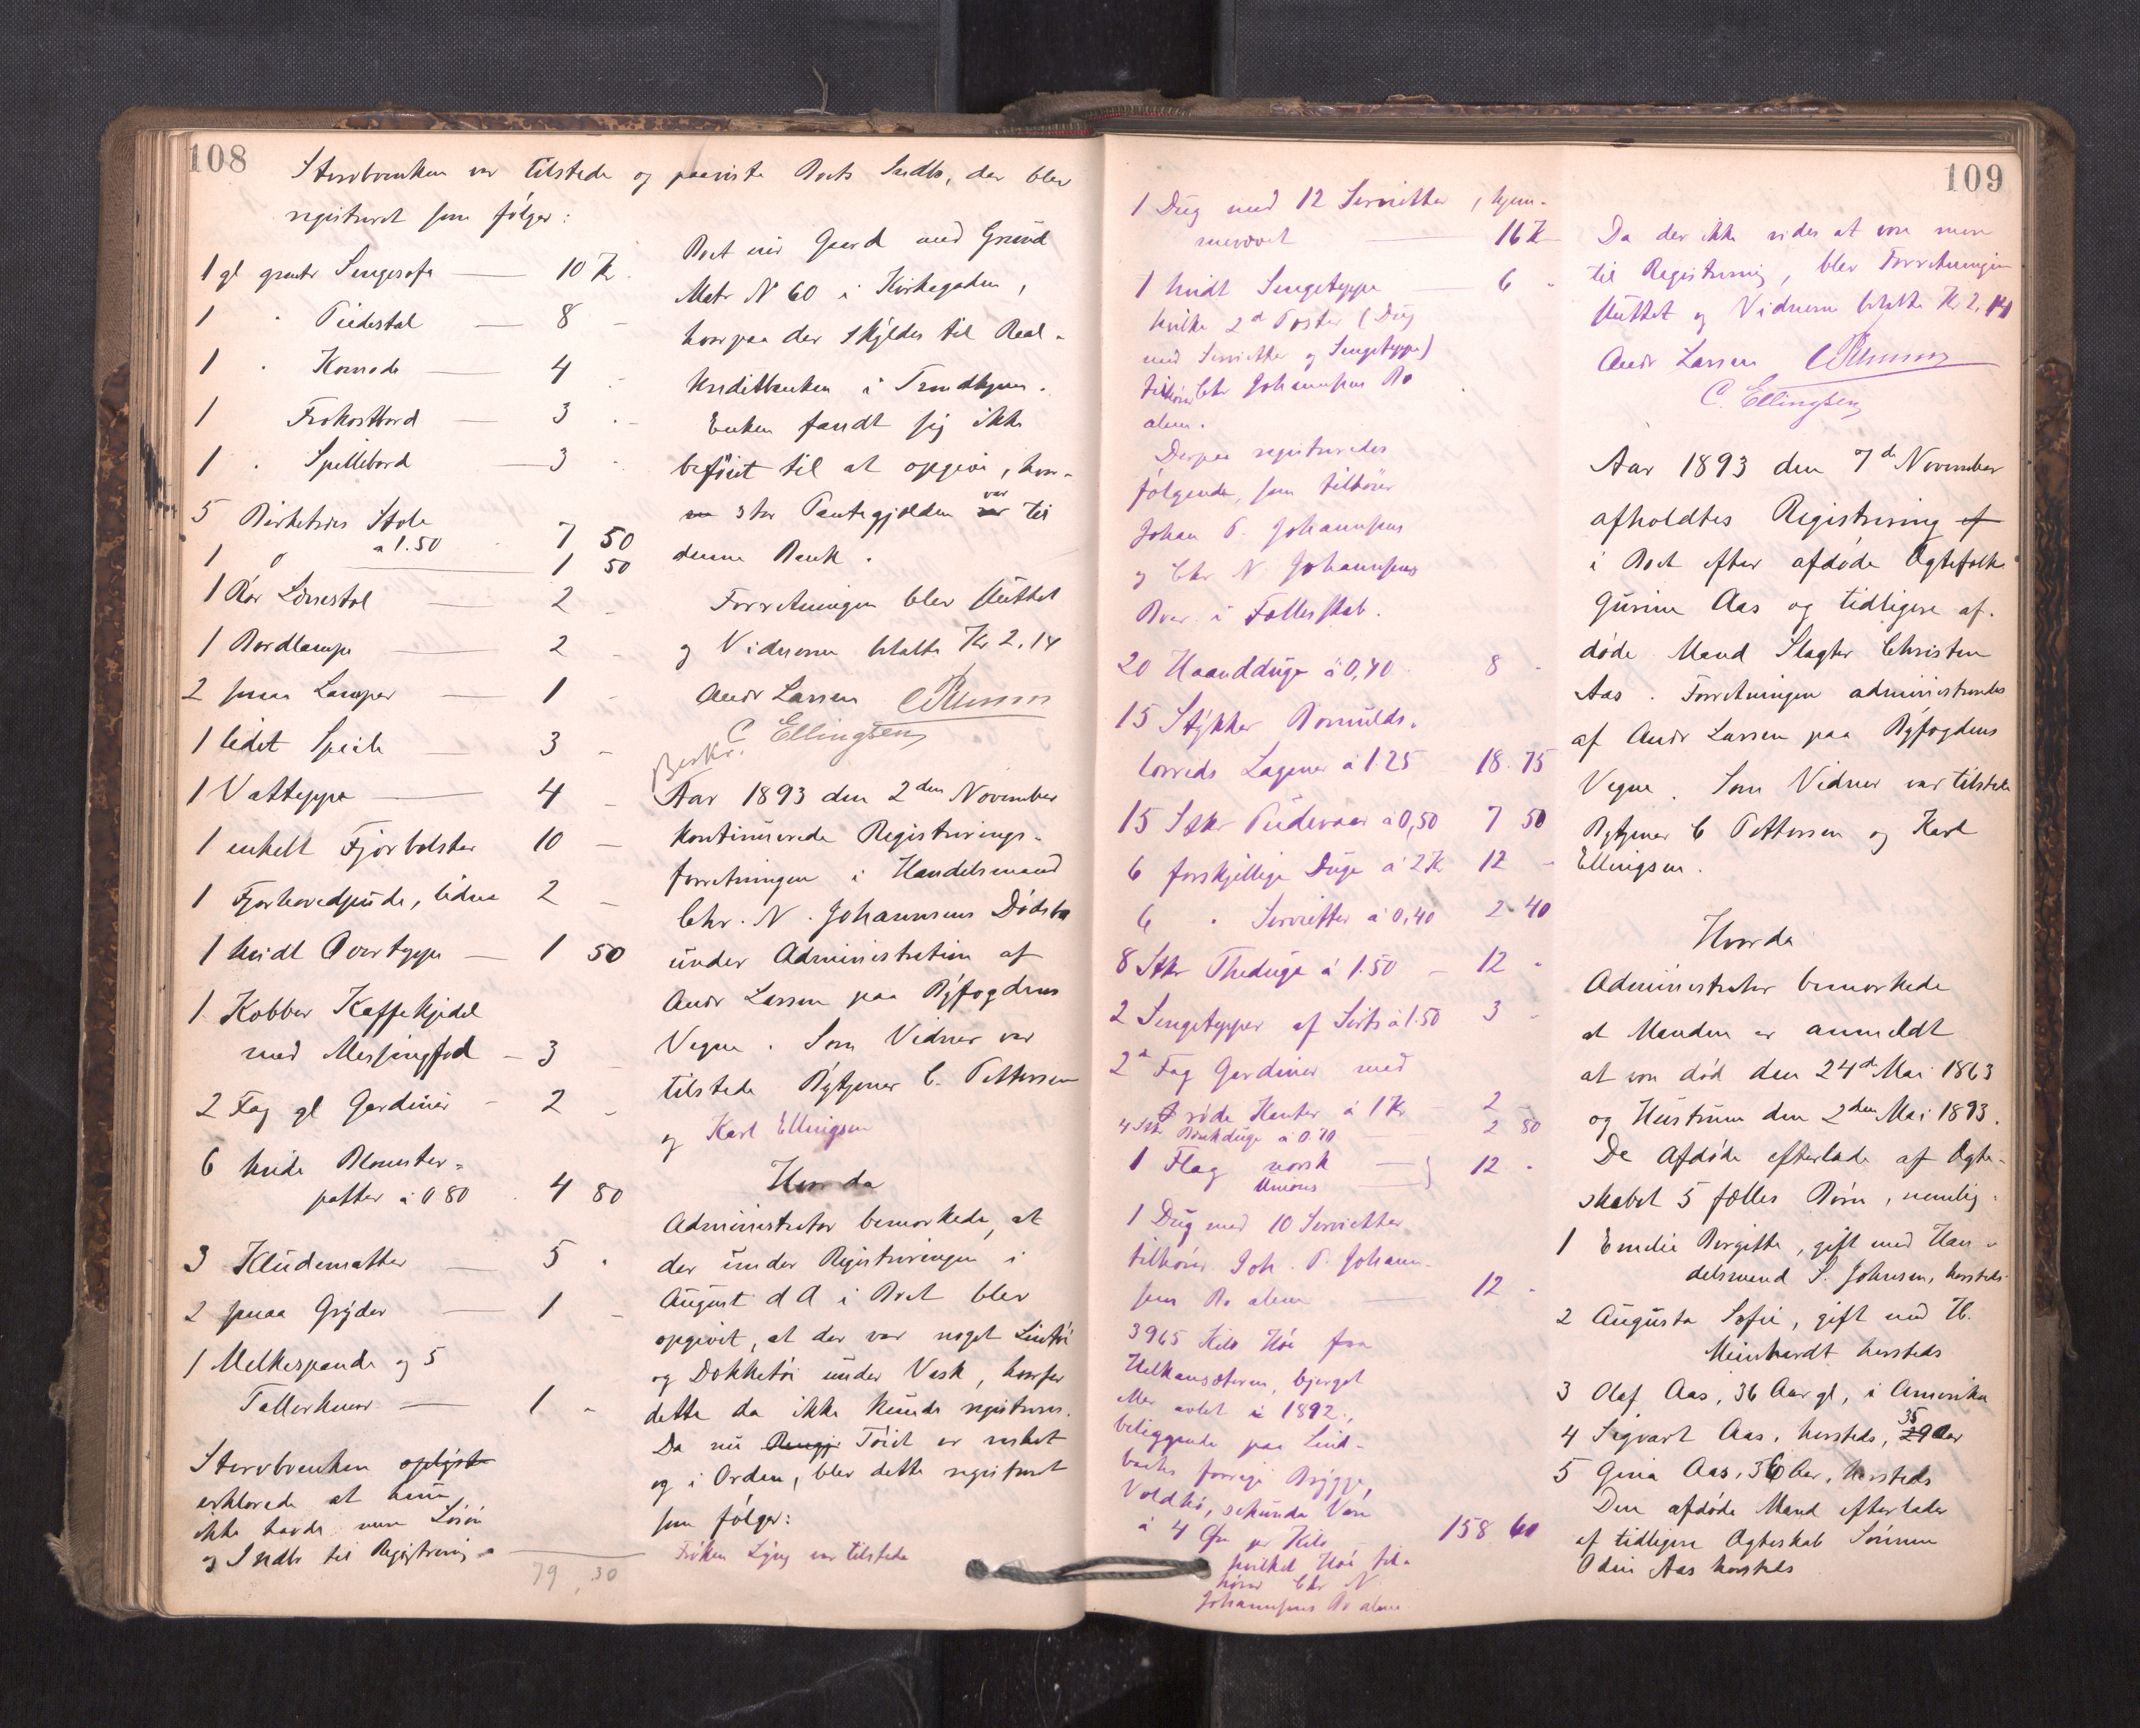 108
Stervboenken var tilstede og paaviste Boets Indbo, der blev
registreret som følger:
1 gl Sengesofa — 10 Kr.
1 " Piedestal — 8 -
1 " Komode — 4 -
1 Frokostbord — 3 -
1 " Spillebord — 3 -
5 Birketræs Stole
a 1.50 7 50
1 Do — 1 50
1 Rør Lænestol — 2 -
1 Bordlampe — 2 -
2 smaa Lamper — 1 -
1 lidet Speil — 3 -
1 Vatteppe — 4 -
1 enkelt Fjørbolster 10 -
1 Fjørhovedpude, liden 2 -
1 hvidt Overteppe — 1 50
1 Kobber Kaffekjedel
med Messingfod — 3 -
2 Fag gl Gardiner - 2 -
6 hvide Blomster-
potter à 0 80 . 4 80
3 Kludematter — 5 "
2 smaa Gryder — 1 -
1 Melkespande og 5
Tallerkener — 1 -
Stervboenken oplyste
erklærede at hun
ikke havde mere Løsøre
og Indbo til Registrering.
79,30
Boet eier Gaard med Grund
Matr N 60 i Kirkegaden,
hvorpaa der skyldes til Real-
kreditbanken i Trondhjem.
Enken fandt sig ikke
beføiet til at opgive, hvor-
stor Pantegjælden var til
denne Bank.
Forretningen blev sluttet
og Vidnerne betalte Kr 2.14
Andr Larssen
C. Ellingsen
Beskr.
Aar 1893 den 2den November
kontinuerede Registrerings-
forretningen i Handelsmand
Chr. N. Johannsens Dødsbo
under Administration af
Andr Larssen paa Byfogdens
Vegne. Som Vidner var
tilstede Bytjener C. Pettersen
og Karl Ellingsen
Hvorda
Administrator bemærkede, at
der under Registreringen i
August d A i Boet blev
opgivet, at der var noget Lintøi
og Dækketøi under Vask, hvorfor
dette da ikke kunde registreres.
Da nu Tøiet er vasket
og i Orden, blev dette registreret
som følger:
Frøken Lyng var tilstede
109
1 Dug med 12 Servietter, hjem-
mevævet — 16 Kr
1 hvidt Sengeteppe — 6 "
hvilke 2de Poster (Dug
med Servietter og Sengeteppe)
tilhører Chr Johannsens Bo
alene.
Derpaa registreredes
følgende, som tilhører
Johan P. Johannsens
og Chr N Johannsens
Boer i Fællesskab.
20 Haandduge à 0,40 8 "
15 Stykker Bomulds-
lærreds Lagener à 1.25 18.75
15 Stkr Pudevaar à 0,50 7 50
6 forskjellige Duge à 2 Kr 12 -
6 " Servietter à 0,40 2.40
8 Stkr Theduge à 1.50 - 12 "
2 Sengetepper af Sirts à 1.50 3 -
2 Fag Gardiner med
røde Kanter à 1 Kr - 2 -
4 Stk à 0.70 — 2 80
1 Flag norsk — } 12 "
Unions —
1 Dug med 10 Servietter
tilhører Joh. P. Johann-
sens Bo alene — 12 "
3965 Kilo Høi fra
bjerget
eller avlet i 1892,
beliggende paa Lind-
bæks forrige Brygge,
Voldhø, sekunda Vare
à 4 Øre pr Kilo 158 60
hvilket Høi til-
hører Chr N
Johannsens Bo alene
Da der ikke vides at være mere
til Registrering, blev Forretningen
sluttet og Vidnerne betalte Kr 2,14
Andr Larssen
C. Ellingsen
Aar 1893 den 7de November
afholdtes Registrering af
i Boet efter afdøde Ægtefolk
Gurine Aas og tidligere af-
døde Mand Slagter Christen
Aas. Forretningen administreredes
af Andr Larssen paa Byfogdens
Vegne. Som Vidner var tilstede
Bytjener C Pettersen og Karl
Ellingsen.
Hvorda
Administrator bemærkede
at Manden er anmeldt
at være død den 24de Mai 1863
og Hustruen den 2den Mai 1893.
De Afdøde efterlode af Ægte-
skabet 5 fælles Børn, nemlig:
1 Emelie Birgitte, gift med Han-
delsmand S. Johnsen, hersteds
2 Augusta Sofie, gift med H.
Meinhardt hersteds
3 Olaf Aas, 36 Aar gl, i Amerika
4 Sigvart Aas, hersteds, 35 29 Aar
5 Gina Aas, 36 Aar, hersteds
Den afdøde Mand efterlader
af tidligere Ægteskab Sønnen
Odin Aas hersteds